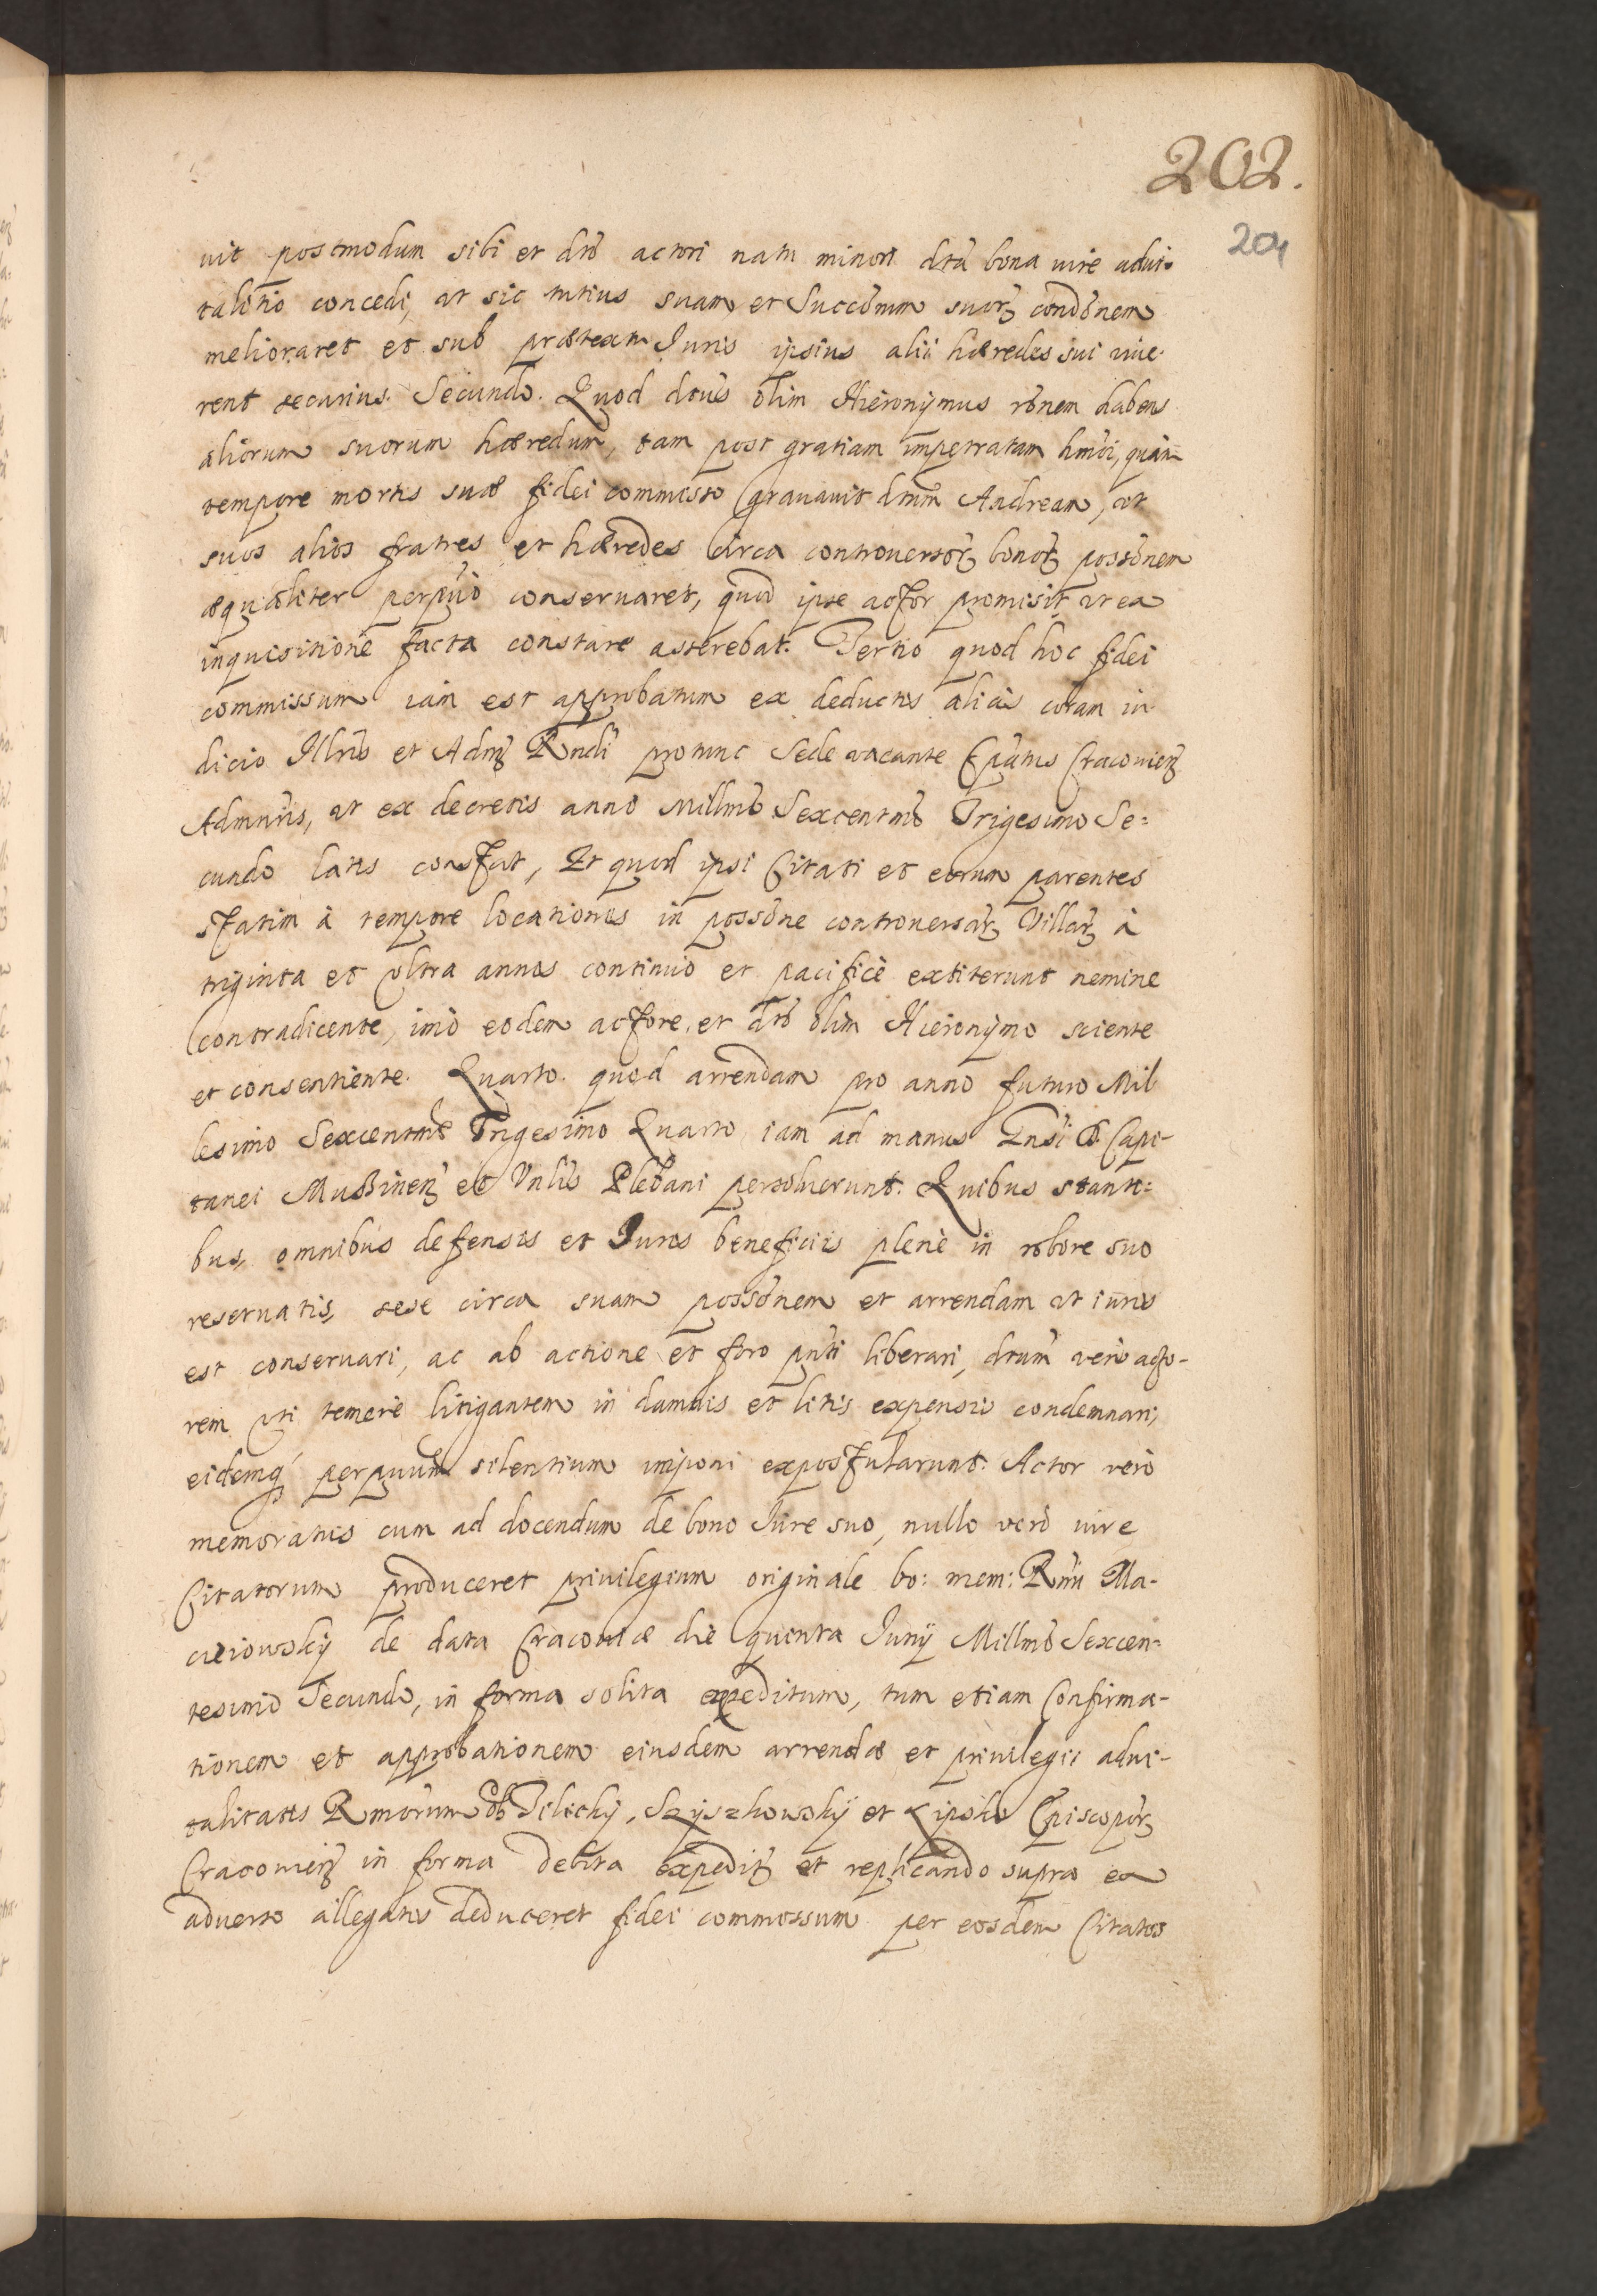 202.
204
uit postmodum sibi et dto actori natu minori dta bona iure advi-
talitio concedi, ut sic tutius suam et Succorum suorz condonem
melioraret et sub prætextu Iuris ipsius alii hæredes sui vive-
rent securius. Secundo. Quod dtus olim Hieronymus ronem habens
aliorum suorum hæredum, tam post gratiam impetratam hmoi, quam
tempore mortis suæ fidei commisso gravavit dtum Andream, ut
suos alios fratres et hæredes circa controversorz bonorz possonem
æqualiter perpuo conservaret, quod ipse actor promisit ut ex
inquisitione facta constare asserebat. Tertio quod hoc fidei
commissum iam est approbatum ex deductis aliàs coram iu-
dicio Illris et Admz Rndi pro tunc Sede vacante Epatus Cracovienz
Admnris, ut ex decretis anno Millmo Sexcentmo Trigesimo Se=
cundo latis constat, Et quod ipsi Citati et eorum parentes
statim à tempore locationis in possone controversarz Villarz à
triginta et ultra annos continuò et pacificè extiterunt nemine
contradicente, imò eodem actore, et dto olim Hieronymo sciente
et consentiente. Quarto. quod arrendam pro anno futuro Mil
lesimo Sexcentmo Trigesimo Quarto iam ad manus Gnsi D. Capi-
tanei Muszinenz et Vnlis Plebani persolverunt. Quibus stanti=
bus, omnibus defensis et Iuris beneficiis plenè in robore suo
reservatis, sese circa suam possonem et arrendam ut iuris
est conservari, ac ab actione et foro pnti liberari, dtum verò acto-
rem uti temerè litigantem in damnis et litis expensis condemnari,
eidemq perpuum silentium imponi expostularunt. Actor verò
memoratus cum ad docendum de bono Iure suo, nullo verò iure
Citatorum produceret privilegium originale bo: mem: Rmi Ma-
cieiowsky de data Cracoviæ die quinta Iunij Millmo Sexcen-
tesimo Secundo, in forma solita expeditum, tum etiam Confirma-
tionem et approbationem eiusdem arrendæ et privilegii advi-
talitatis Rmorum dd Tilicky, Szyszkowsky et Lipski Episcoporz
Cracovienz in forma debita expeditz et replicando supra ex
adverso allegatis deduceret fidei commissum per eosdem Citatos